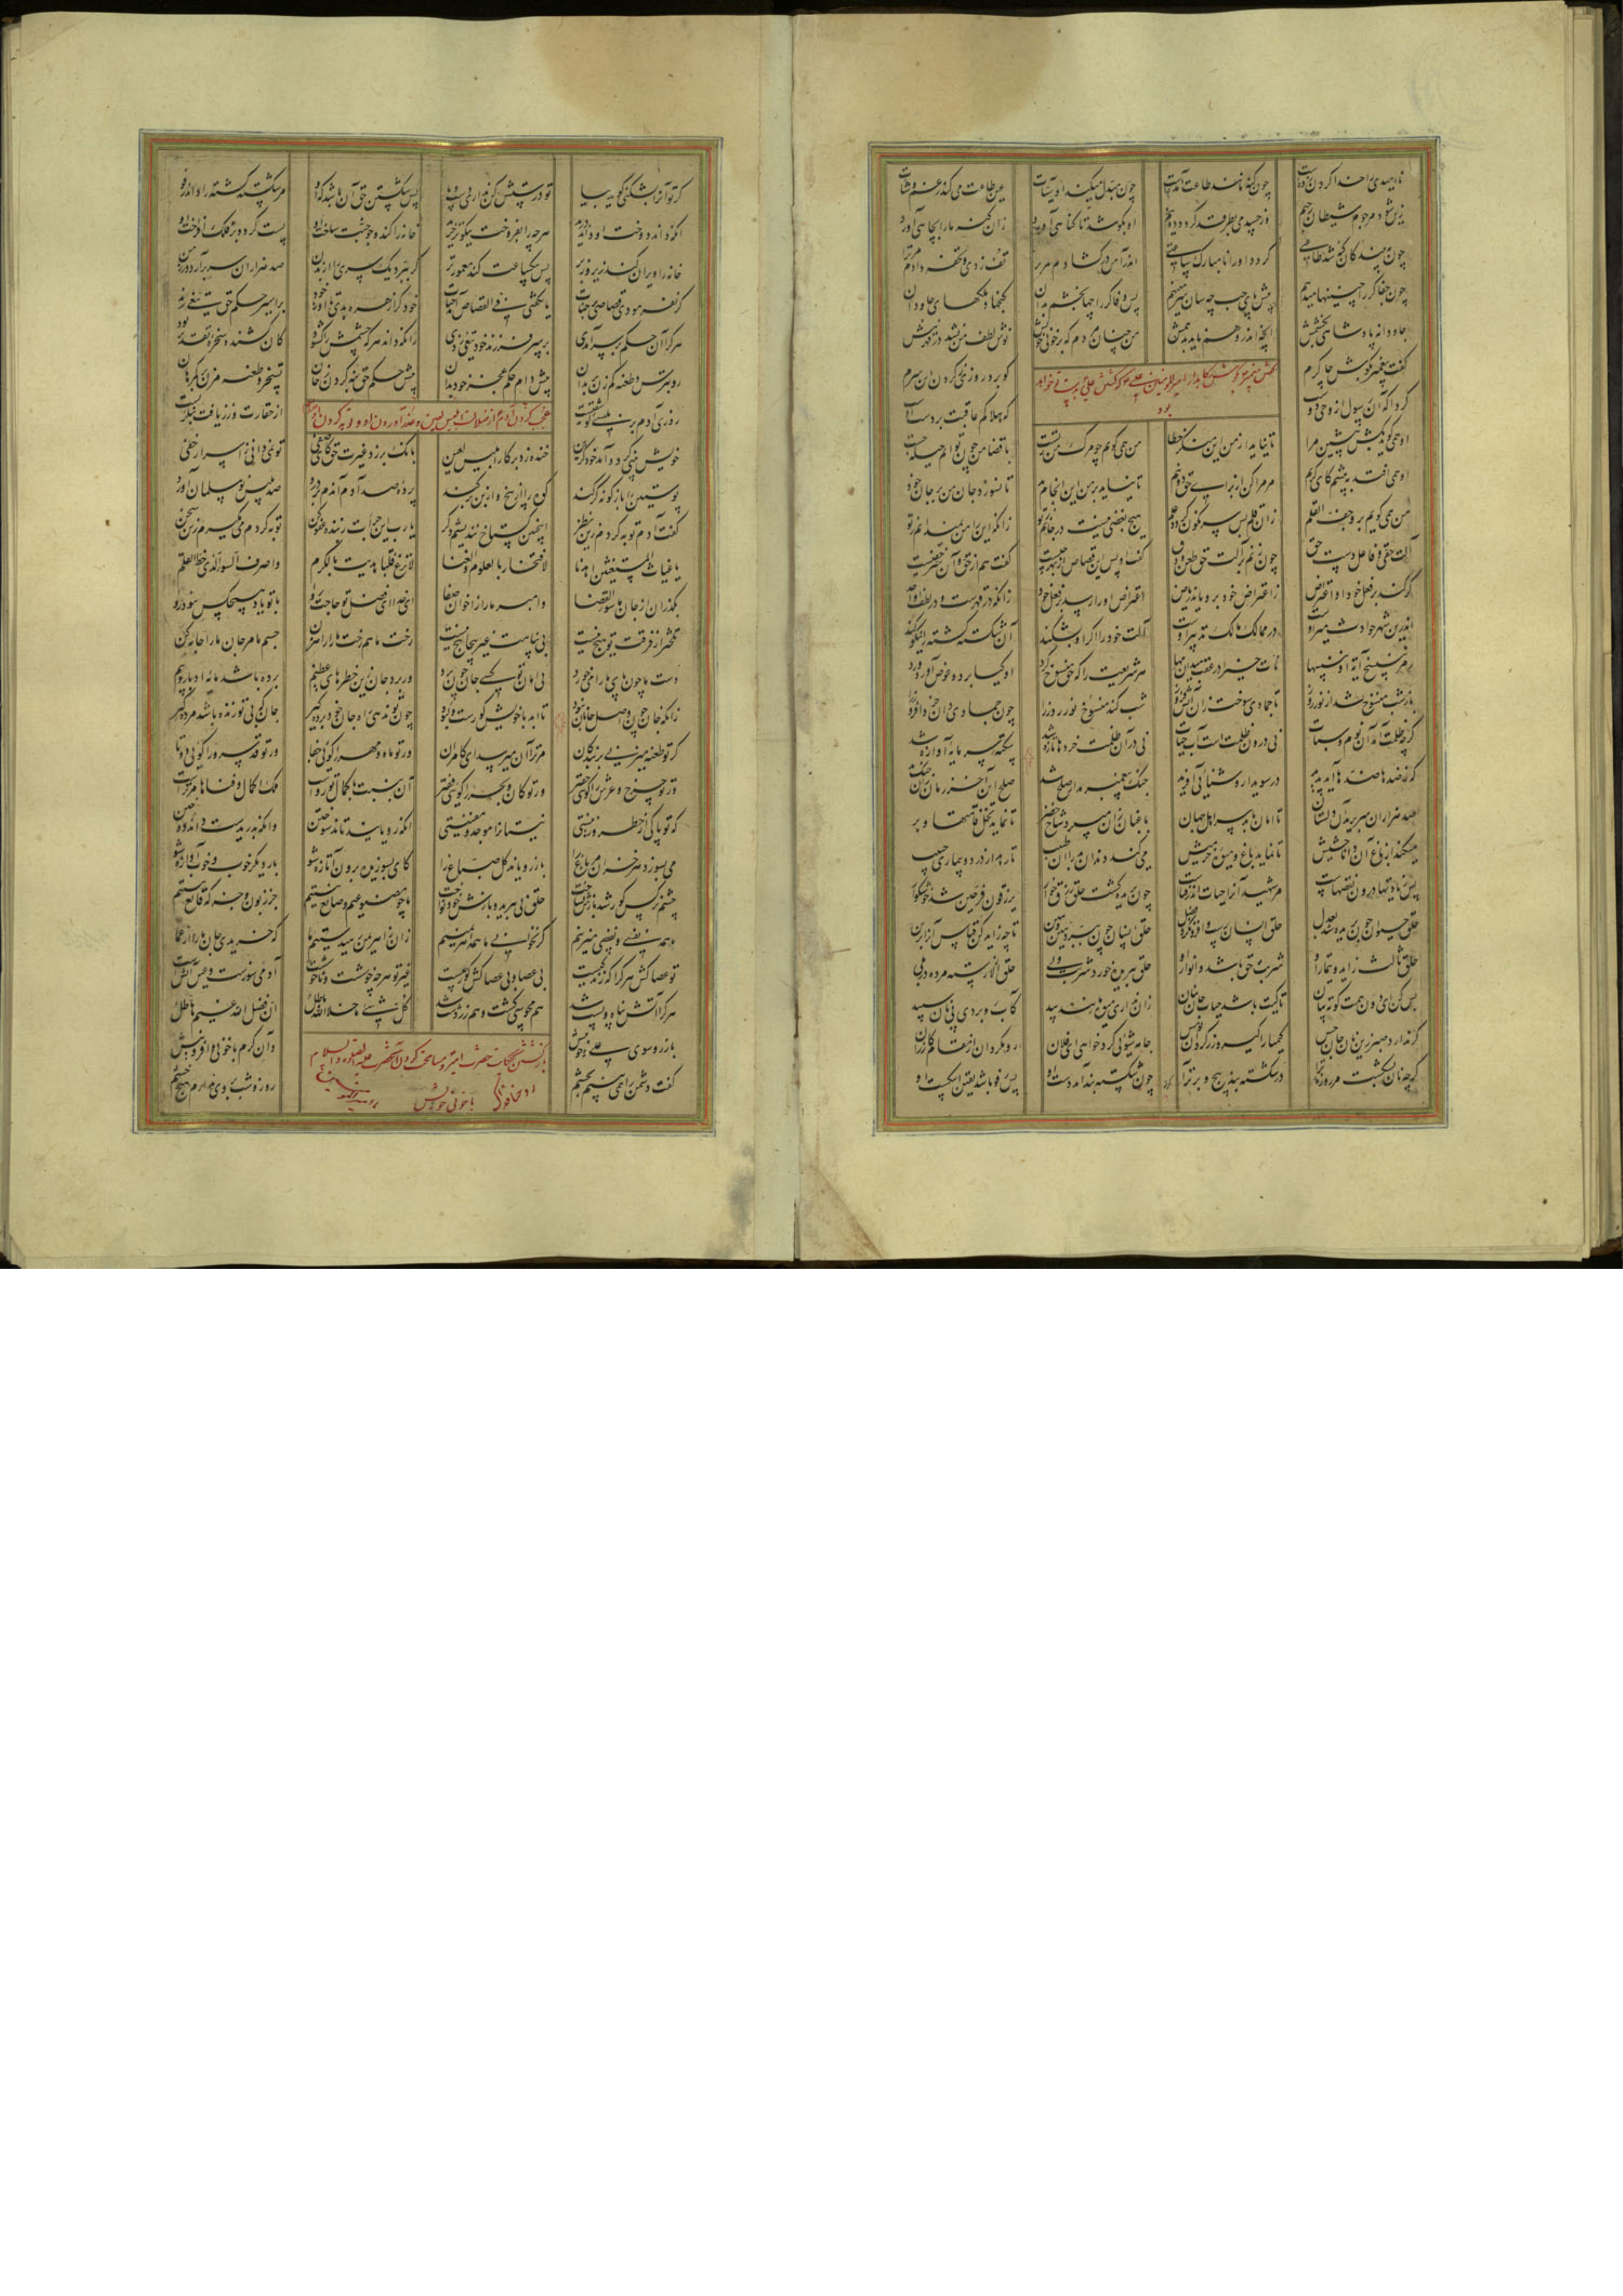 ناامیدی را خدا گردن زدست چون گنه مانند طاعت آمدست چون مبدل میکند او سیئات عین طاعت می کند رغم وشات
زین شود مرجوم شیطان رجیم وز حسد می بطرقد گردد دو نیم او بکوشد تا گناهی آورد زان گنه ما را بچاهی آورد
چون ببیند کان گنه شد طاعتی گردد او را نامبارک ساعتی اندر آ من در گشادم مر ترا تف زدی و تحفه دادم مر ترا
چون جفاگر را چنینها میدهم پیش پای چپ چه سان سر مینهم پس وفاگر را چها بخشم بدان گنجها و ملکهای جاودان
جاودانه پادشاهی بخشمش آنچه اندر وهم ناید بدهمش من چنان مردم که بر خونی خویش نوش لطف من نشد در قهر نیش
گفتن پیغمبر بگوش رکابدار امیرالمؤمنین علی که کشتن علی بر دست تو خواهد بود
گفت پیغمبر بگوش چاکرم کو برد روزی ز گردن این سرم
کرد آگه آن رسول از وحی دوست که هلاکم عاقبت بر دست اوست
او همی گوید بکش پیشین مرا تا نیاید از من این منکر خطا من همی گویم چو مرگ من ز تست با قضا من چون توانم حیله جست
او همی افتد به پیشم کای کریم مر مرا کن از برای حق دو نیم تا نیاید بر من این انجام بد تا نسوزد جان من بر جان خود
من همی گویم برو جف القلم زان قلم بس سرنگون گردد علم هیچ بغضی نیست در جانم ز تو زانکه این را من نمیدانم ز تو
آلت حقی و فاعل دست حق چون زنم بر آلت حق طعن و دق گفت او پس این قصاص از بهر چیست گفت هم از حق و آن سر خفیست
گر کند بر فعل خود او اعتراض ز اعتراض خود برویاند ریاض اعتراض او را رسد بر فعل خود زانکه در قهرست و در لطف او احد
اندرین شهر حوادث میر اوست در ممالک مالک تدبیر اوست آلت خود را اگر او بشکند آن شکسته گشته را نیکو کند
رمز ننسخ آیة او ننسها نات خیرا در عقب میدان مها هر شریعت را که حق منسوخ کرد او گیا برد و عوض آورد ورد
باز شب منسوخ شد از نور روز تا جمادی سوخت زان آتش فروز شب کند منسوخ نور روز را چون جمادی دان خرد افروز را
گرچه ظلمت آمد آن نوم و سبات نی درون ظلمت است آب حیات نی در آن ظلمت خردها تازه شد سکته سرمایه آوازه شد
که ز ضدها ضدها آمد پدید در سویدا روشنایی آفرید جنگ پیغمبر مدار صلح شد صلح این آخر زمان زان جنگ بد
صد هزاران سر برید آن دلستان تا امان یابد سر اهل جهان باغبان زان می برد شاخ مضر تا نماید نخل قامتها و بر
میکند از باغ آن دانا حشیش تا نماید باغ و میوه خرمیش می کند دندان بد را آن طبیب تا رهد از درد و بیماری حبیب
پس زیادتها درون نقصهاست مر شهیدان را حیات اندر فناست چون بریده گشت حلق رزق خوار یرزقون فرحین شد خوشگوار
حلق حیوان چون بریده شد بعدل حلق انسان رست و افزونید فضل حلق انسان چون ببرد هین ببین تا چه زاید کن قیاس آن برین
حلق ثالث زاید و تیمار او شربت حق باشد و انوار او حلق ببریده خورد شربت ولی حلق از لا رسته مرده در بلی
بس کن ای دون همت کوته بنان تا کیت باشد حیات جان بنان زان نداری میوه مانند بید کآب رو بردی پی نان سپید
گر ندارد صبر زین نان جان حس کیمیا را گیر و زر گردان تو مس جامه شویی کرد خواهی ای فلان رو مگردان از محله گازران
گرچه نان بشکست مر روزه ترا در شکسته بند پیچ و برتر آ چون شکسته بند آمد دست او پس رفو باشد یقین اشکست او
گر تو آنرا بشکنی گوید بیا تو درستش کن نداری دست و پا پس شکستن حق آن باشد که او مر شکسته گشته را داند رفو
آنکه داند دوخت او داند درید هرچه را بفروخت نیکوتر خرید خانه را کند و چو جنت ساخت او پست کرد و بر فلک افراخت او
خانه را ویران کند زیر و زبر پس بیک ساعت کند معمورتر گر ببرد یک سری را از بدن صد هزاران سر برآرد در زمن
گر نفرمودی قصاصی بر جنات یا نگفتی فی القصاص آمد حیات خود کرا زهره بدی تا او ز خود بر اسیر حکم حق تیغی زند
زانکه داند هر که چشمش را گشود کان کشنده سخره تقدیر بود هر کرا آن حکم بر سر آمدی بر سر فرزند خود تیغی زدی
رو بترس و طعنه کم زن بر بدان پیش دام حکم عجز خود بدان پیش حکم حق بنه گردن ز جان تسخر و طعنه مزن بر گمرهان
عجب کردن آدم از ضلالت ابلیس لعین و عذر آوردن او و توبه کردن
روزی آدم بر بلیسی کو شقیست از حقارت وز زیافت بنگریست
خویش بینی کرد و آمد خودگزین خنده زد بر کار ابلیس لعین بانگ بر زد غیرت حق کای صفی تو نمی دانی ز اسرار خفی
پوستین را باز گونه گر کند کوه را از بیخ و از بن بر کند پرده صد آدم آن دم بر درد صد بلیس نو مسلمان آورد
گفت آدم توبه کردم زین نظر اینچنین گستاخ نندیشم دگر یا رب این جرأت ز بنده عفو کن توبه کردم می مگیرم زین سخن
یا غیاث المستغیثین اهدنا لا افتخار بالعلوم والغنا لا تزغ قلبا هدیت بالکرم واصرف السوء الذی خط القلم
بگذران از جان ما سوء القضا وامبر ما را ز اخوان صفا ای خدا ای فضل تو حاجت روا با تو یاد هیچ کس نبود روا
تلختر از فرقت تو هیچ نیست بی پناهت غیر پیچاپیچ نیست رخت ما هم رخت ما را راه زن جسم ما مر جان ما را جامه کن
دست ما چون پای ما را می خورد بی امان تو کسی جان چون برد ور برد جان زین خطرهای عظیم برده باشد مایه ادبار و بیم
زانکه جان چون واصل جانان نبود تا ابد با خویش کورست و کبود چون تو ندهی راه جان خود برده گیر جان که بی تو زنده باشد مرده گیر
گر تو طعنه میزنی بر بندگان مر ترا آن میرسد ای کامران ور تو ماه و مهر را گویی جفا ور تو قد سرو را گویی دوتا
ور تو چرخ و عرش را گویی حقیر ور تو کان و بحر را گویی فقیر آن بنسبت با کمال تو رواست ملک اکمال و فناها مر تراست
که تو پاکی از خطر وز نیستی نیستانرا موجد و مغنیستی آنکه رویانید تاند سوختن وانکه بدرید است داند دوختن
می بسوزد هر خزان مر باغ را باز رویاند گل صباغ را کای بسوزیده برون آ تازه شو بار دیگر خوب و خوب آوازه شو
چشم نرگس کور شد بازش بساخت حلق نی ببرید و بازش خود نواخت ما چو مصنوعیم و صانع نیستیم جز زبون و جز که قانع نیستیم
ما همه نفسی و نفسی میزنیم گر نخوانی ما همه اهرمنیم زان ز اهرمن رهیدستیم ما که خریدی جان ما را از عما
تو عصاکش هر کرا که زندگیست بی عصا و بی عصاکش کور چیست غیر تو هرچه خوشست و ناخوشست آدمی سوزست و عین آتشست
هر کرا آتش پناه و پشت شد هم مجوسی گشت و هم زردشت شد کل شیء ما خلا الله باطل ان فضل الله غیم هاطل
بازگشتن بحکایت حضرت امیر و مسامحه کردن آنحضرت علیه الصلوة والسلام با خونی خویش
باز رو سوی علی و خونیش وان کرم با خونی و افزونیش
گفت دشمن را همی بینم بچشم روز و شب بر وی ندارم هیچ خشم